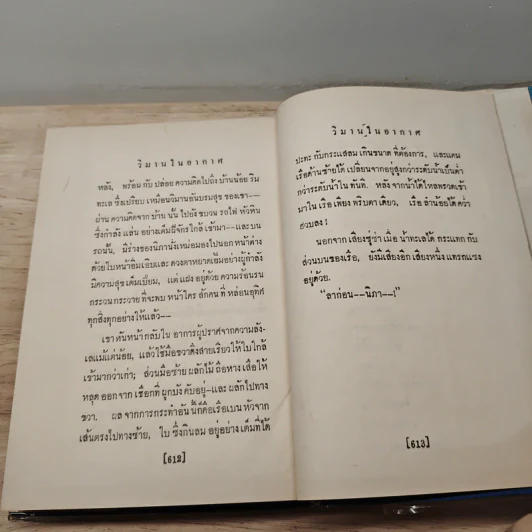 วิมานในอากาศ
หลัง, พร้อม กับ ปล่อย ความคิดไปถึง บ้านน้อย ริม
ทะเล ซึ่งเปรียบ เหมือนวิมานอันบรมสุข ของเขา--
ผ่าน ความคิดจาก บ้าน นั้น ไปยัง ขบวน รถไฟ หัวหิน
ซึ่งกำลัง แล่น อย่างเต็มฝีจักร ใกล้ เข้ามา--และ บน
รถนั้น, มีร่างของนิภานั่งเหม่อมองไปนอก หน้าต่าง
ด้วยใบหน้าอิ่มเอิบและ ดวงตาหยาดเยิ้มอย่างผู้กำลัง
มีความสุข เต็มเปี่ยม, แต่แฝง อยู่ด้วย ความร้อนรน
กระวน กระวาย ที่จะพบ หน้าใคร สักคน ที่ หล่อนอุทิศ
ทุกสิ่งทุกอย่างให้แล้ว--
เขา หันหน้า กลับใน อาการผู้ปราศจากความลัง-
เลแม้แต่น้อย, แล้วใช้มือขวาดึงสายเรียวให้ใบใกล้
เข้ามากว่าเก่า; ส่วนมือซ้าย ผลักไม้ ถือหาง เสือให้
หลุด ออกจาก เชือกที่ ผูกบัง คับอยู่-และ ผลักไปทาง
ขวา. ผล จากการกระทำอัน นี้ก็คือเรือเบน หัวจาก
เส้นตรงไปทางซ้าย, ใบ ซึ่งกินลม อยู่อย่าง เต็มที่ได้
[612]
วิมานในอากาศ
ปะทะ กับกระแสลม เกินขนาด ที่ต้องการ, และแคม
เรือด้านซ้ายได้ เปลี่ยนจากอยู่สูงกว่าระดับน้ำเป็นต่ำ
กว่าระดับน้ำใน ทันที. หลัง จากน้ำได้ไหลพรวดเข้า
มาใน เรือ เพียง พริบตา เดียว, เรือ ลำน้อยก็ได้ คว่ำ
ฮวบลง !
นอกจาก เสียงซู่ซ่า เมื่อ น้ำทะเลได้ กระแทก กับ
ส่วนบนของเรือ, ยังมีเสียงอีก เสียงหนึ่ง แทรกแซง
อยู่ด้วย.
“ลาก่อน--นิภา--!”
[613]